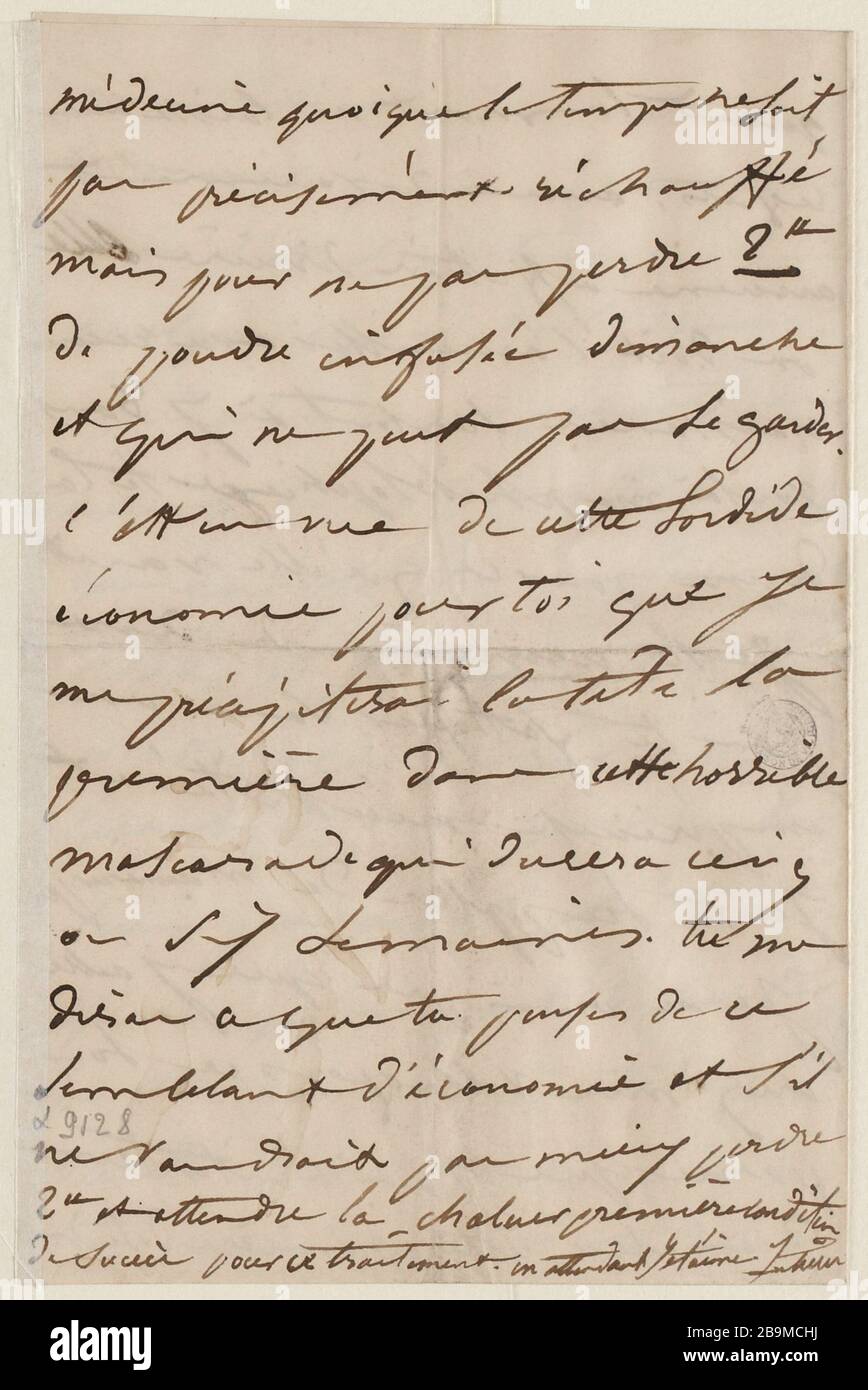 médecine quoique le temps ne soit
pas précisément réchauffé
mais pour ne pas perdre 2 ll
de poudre infusée dimanche
et qui ne peut pas se garder.
c'est en vue de cette sordide
économie pour toi que je
me précipiterai la tête la
première dans cette horrible
mascarade qui durera cinq
ou six semaines. tu me
diras ce que tu penses de ce
semblant d'économie et s'il
ne vaudrait pas mieux perdre
2 ll et attendre la chaleur première condition
de succès pour ce traitement. en attendant je t'aime. Juliette
α 9128
alamy
Image ID: 2B9MCHJ
www.alamy.com